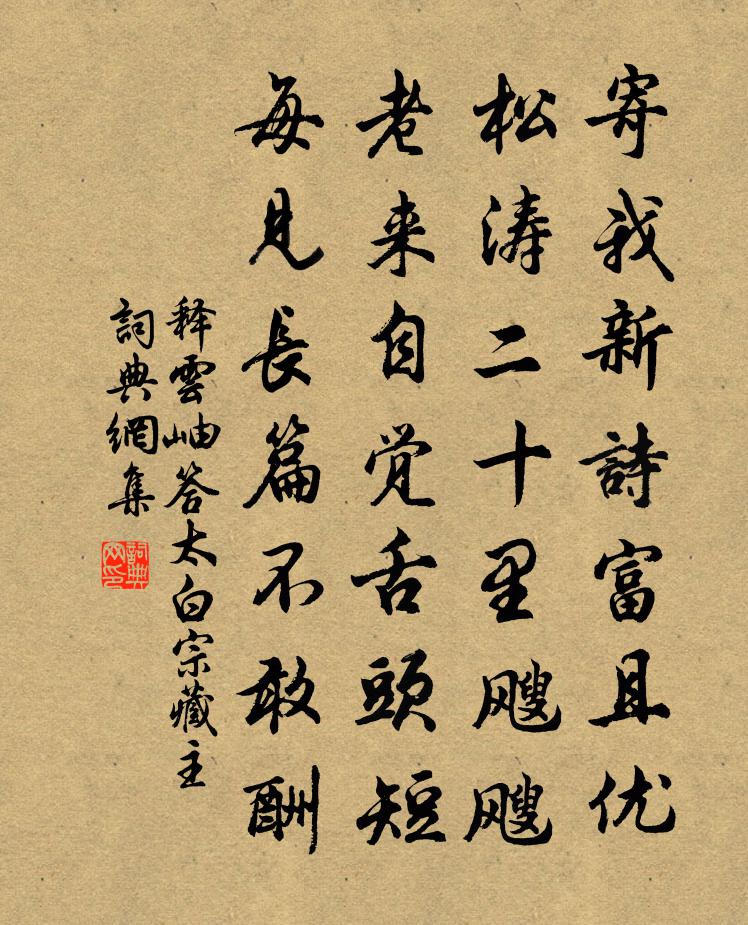 寄我新詩富且优
松涛二十里飕飕
老来自觉舌頭短
每見長篇不敢酬
释雲岫答太白宗藏主
詞典網集
詞典网印